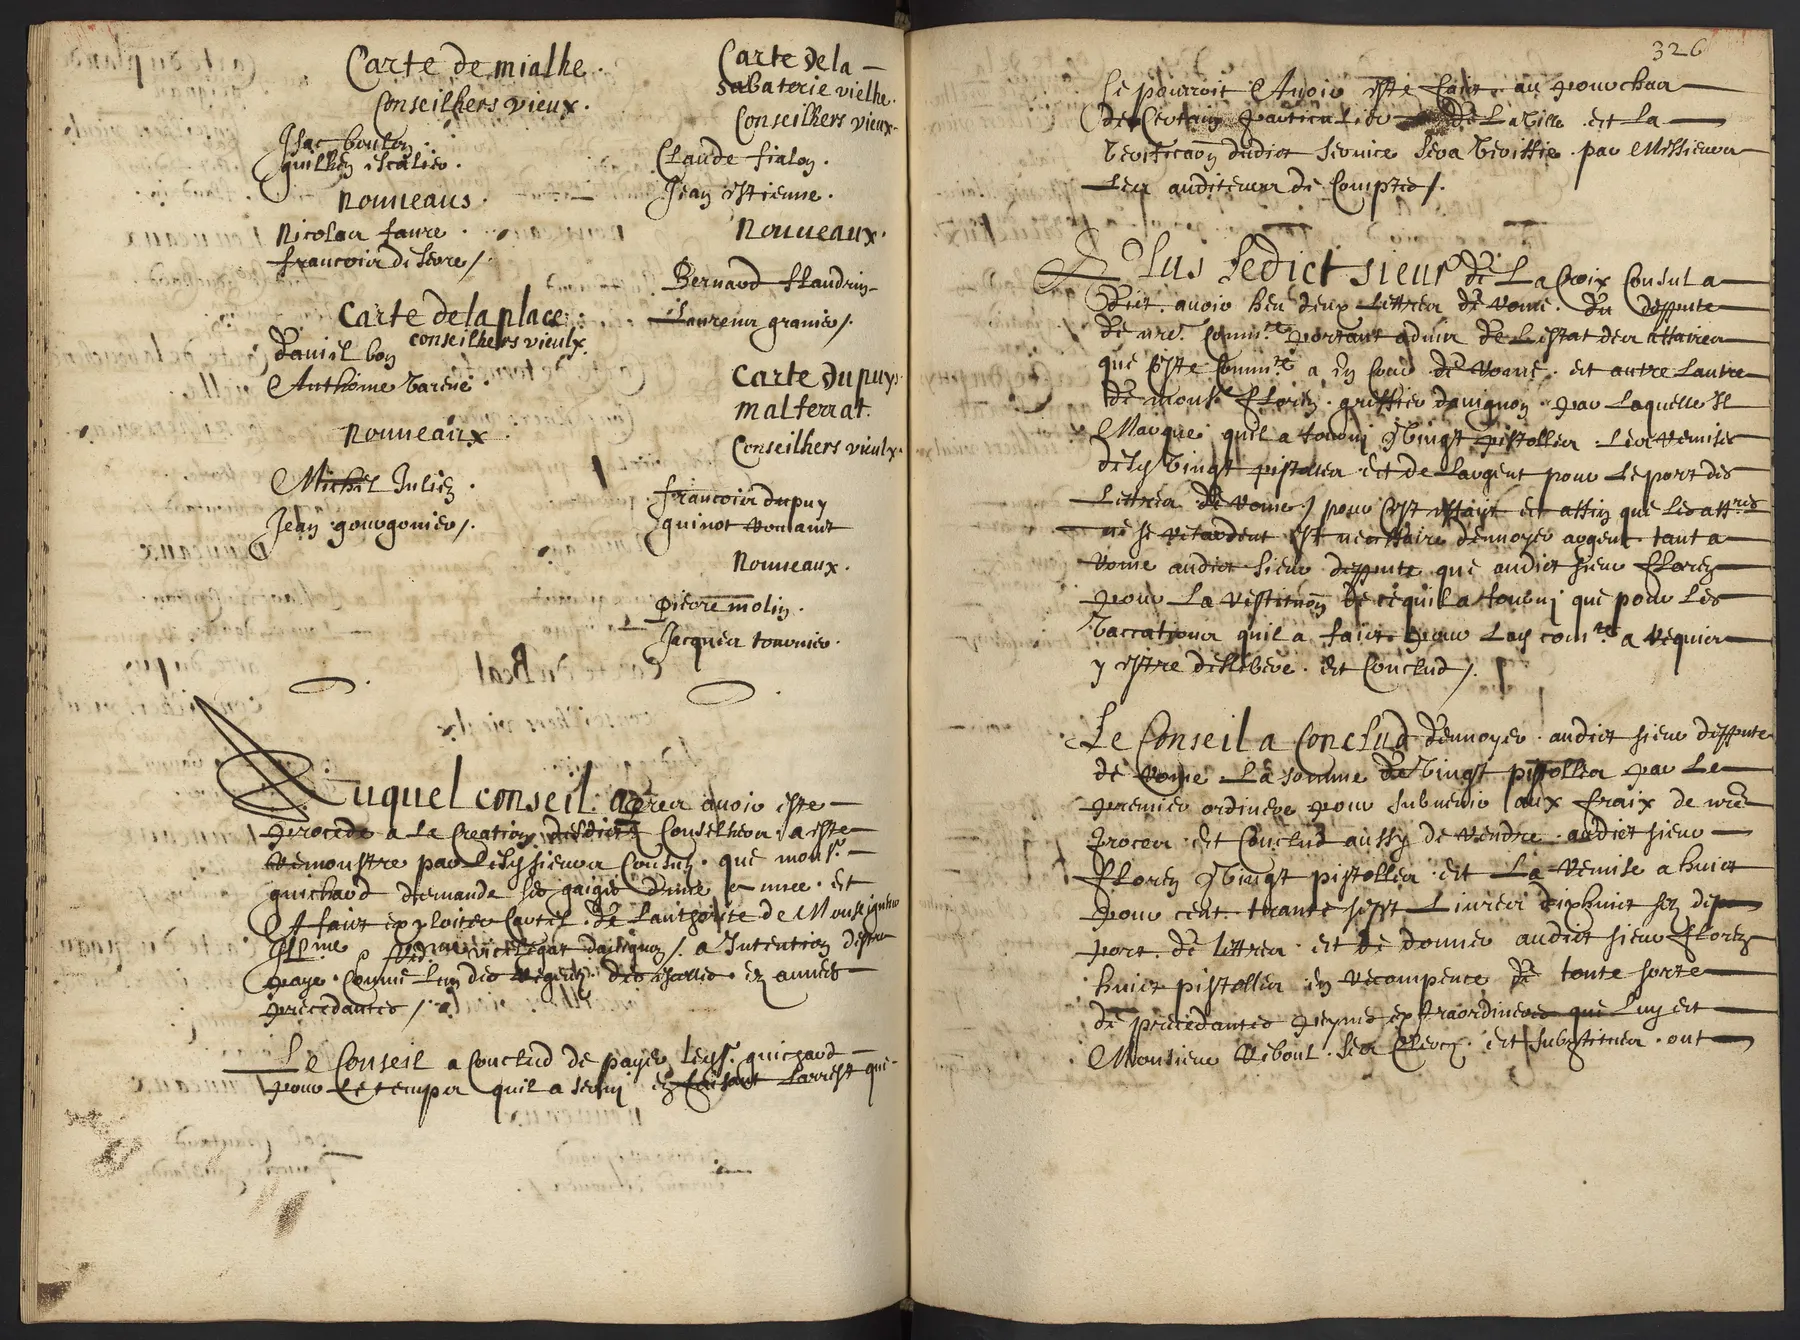 Carte de mialhe.
Conseilhers vieux.
Isac boulon.
guilhen escalier.
nouueaus.
Nicolas faure.
francois de serre /.
Carte de la place.
conseilhers vieulx.
daniel bon
Anthoine
nouueaux.
Michel Julien.
Jean gourgonier /.
Carte de la
sabaterie vielhe.
Conseilhers vieux.
Claude fialon.
Jean estienne.
nouueaux.
Bernard flandrin
Laurens granier /.
Carte du puy
malferrat.
Conseilhers vieulx.
francois dupuy
guinot romant
nouueaux.
pierre molin.
Jacques tournier.
Auquel conseil. apres auoir este
procede a la creation desdicts Conselhers a este
remonstre par lesds sieurs Consulz. que monsr.
guichard demande ses gaiges dune annee. et
A faict exploiter cartel. de lauthorite de Monseigneur
Illme vicelegat dauignon /. a Intention destre
paye. comme lun des regens des en annees
precedantes /.
Le Conseil a conclud de payer leds. guichard
pour le temps quil a serui en faisant larrest que
326
se pourroit Auoir este faict. au pourchas
de Certains particuliers de La Ville. et la
verificaon dudict seruice sera veriffie. par Messieurs
Les auditeurs de Comptes /.
Plus ledict sieur de La Croix Consul a
dict. auoir heu deux lettres de rome. du deppute
de nre. commte portant aduis de lestat des affaires
que ceste commte a en cour de rome. et autre lautre
de monsr florens. greffier dauignon. par laquelle Il
Marque quil a fourni Vingt pistolles. les remises
desds Vingt pistoles et de largent pour le port des
Lettres de rome / pour cest effaict et affin que les affres
ne se retardent est necessaire denuoyer argent. tant a
rome audict sieur deppute que audict sieur florens
pour la restituon de ce quil a fourni que pour les
vaccations quil a faict. pour lads comte a requis
y estre delibere. et Conclud /.
Le Conseil a Conclud denuoyer. audict sieur deppute
de rome. La somme de Vingt pistolles par le
premier ordinere pour subuenir aux fraix de nre
proces. et Conclud aussy de rendre. audict sieur
florens Vingt pistolles. et La remise a huict
pour cent. trante sept Liures dixhuict sos
port. de lettres. et de donner audict sieur florens
huict pistolles en recompence de toute sorte
de precedantes peynes extraordineres que luy et
Monsieur reboul. ses clercz. et substitues. ont